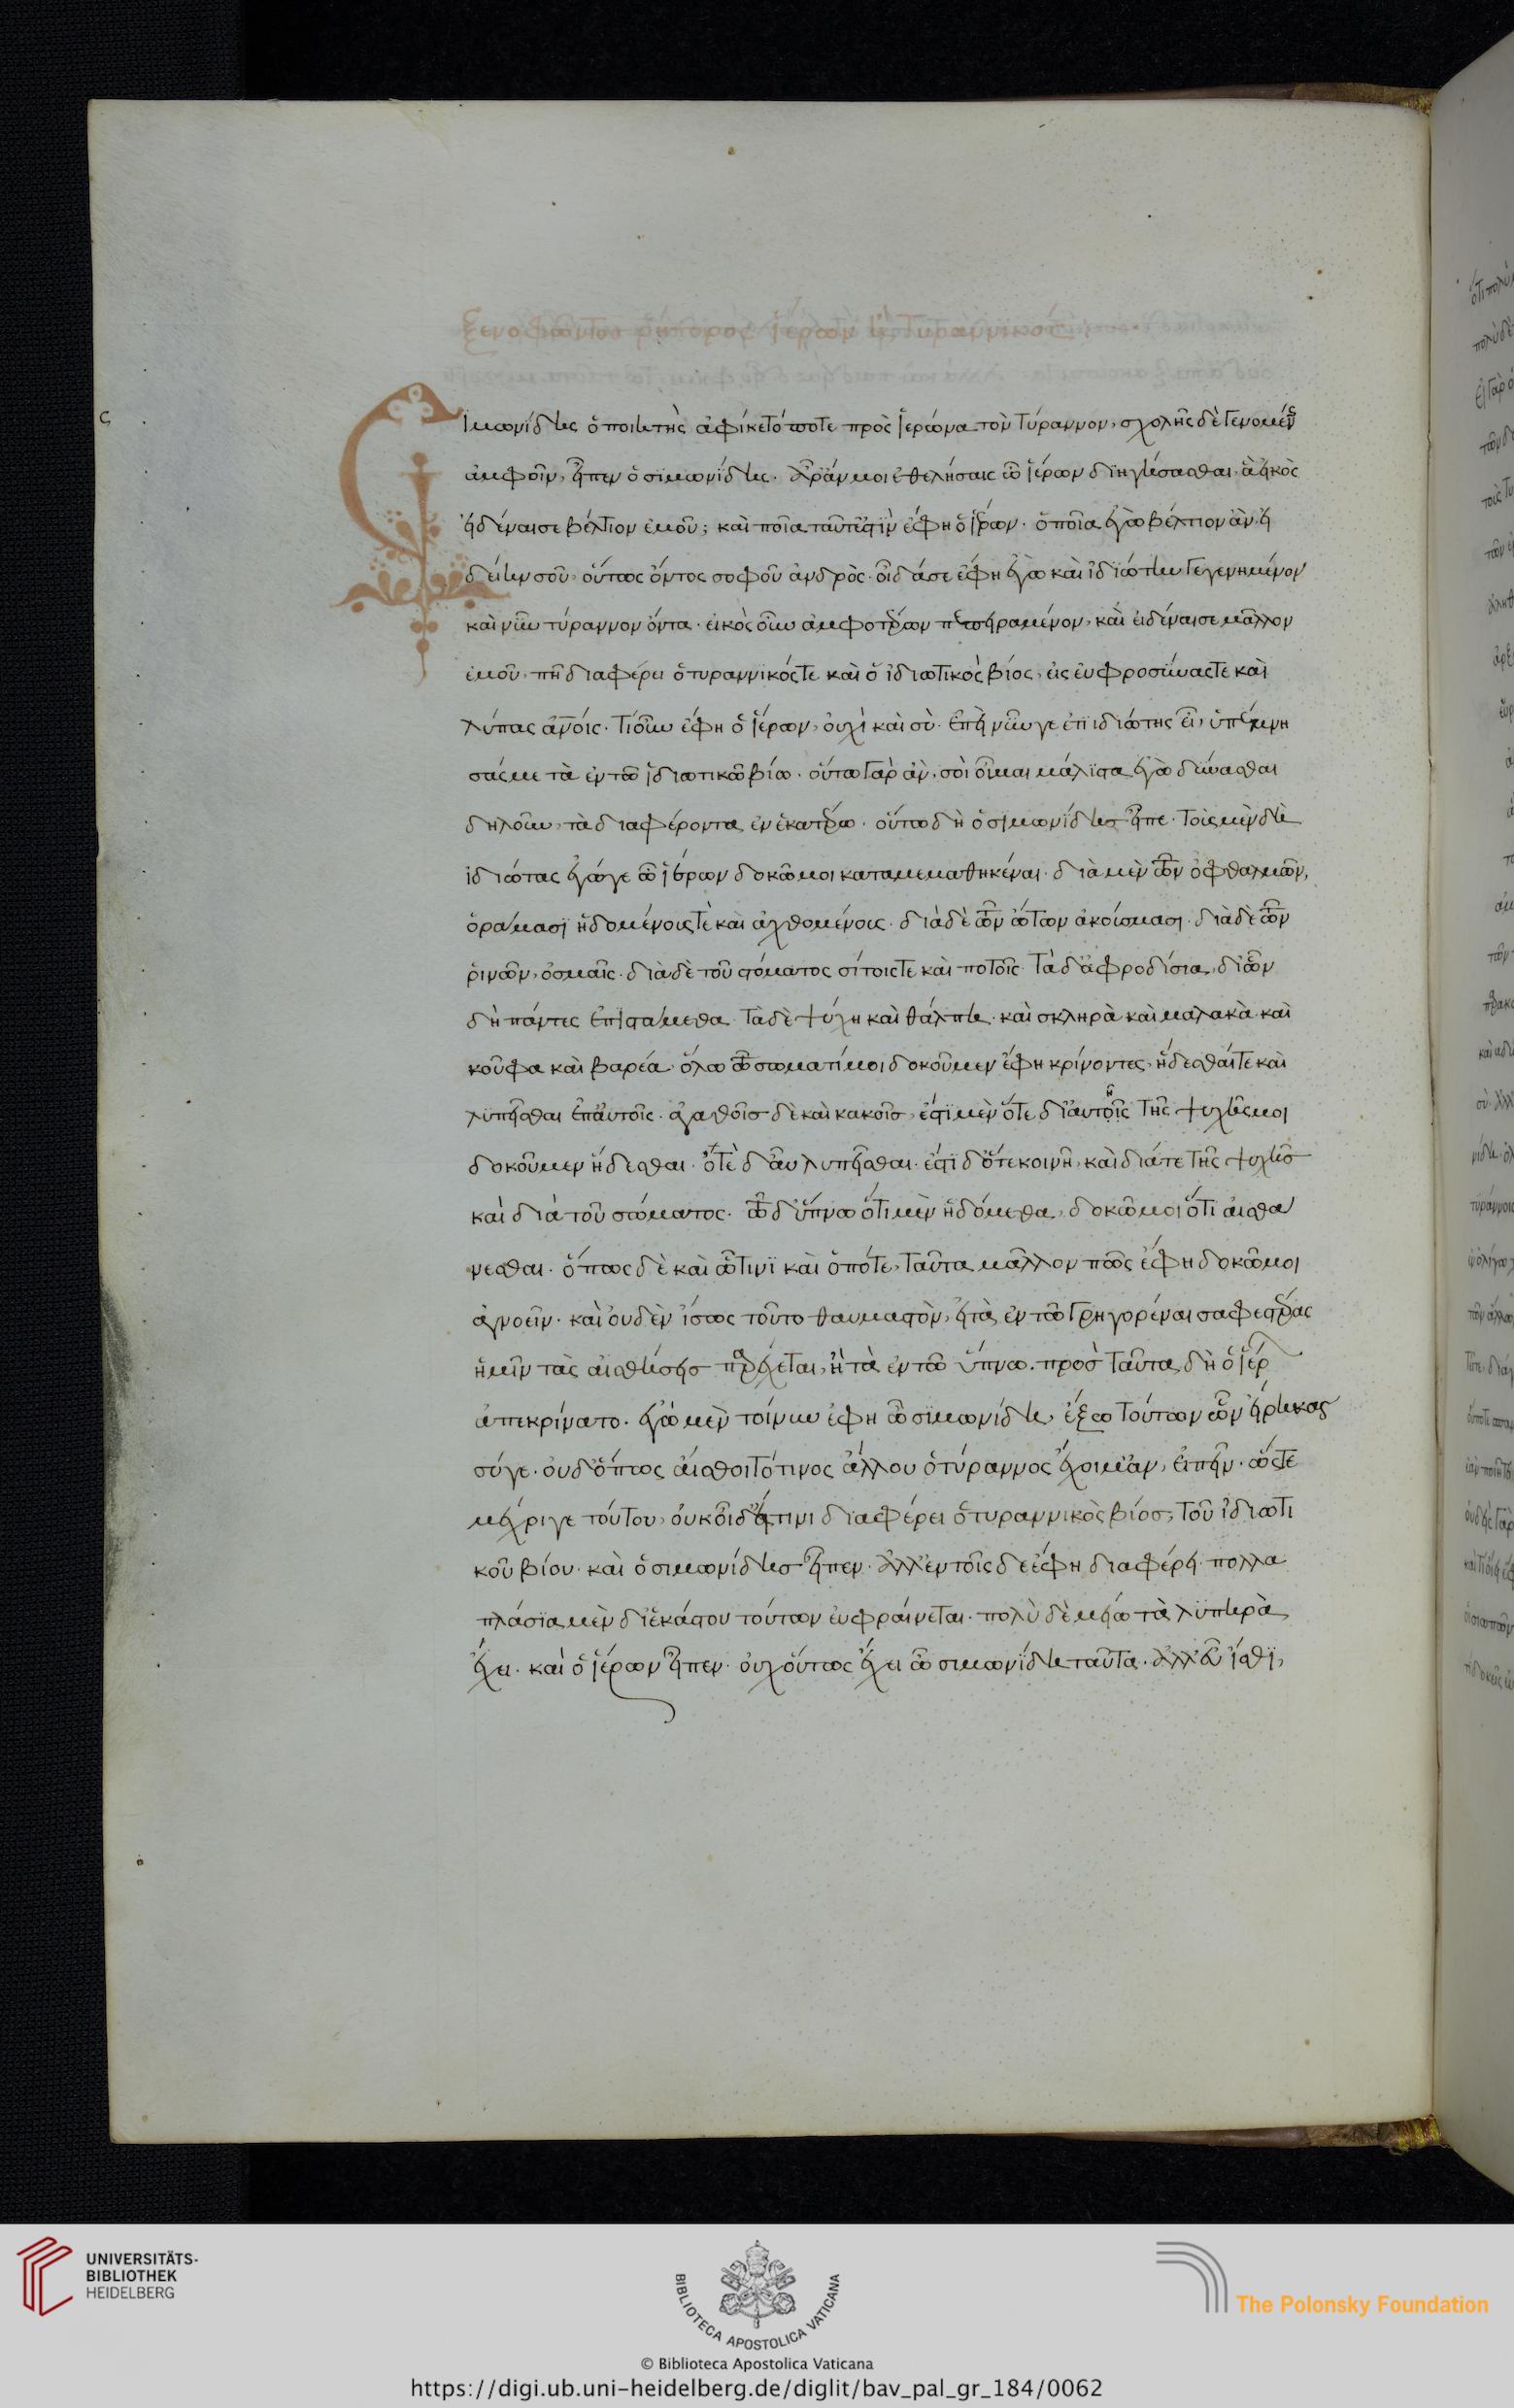 ξενοφῶντος ῥήτορος ἱέρων ἢ τυραννικός
Σιμωνίδης ὁ ποιητὴς ἀφίκετό ποτε πρὸς ἱέρωνα τὸν τύραννον, σχολῆς δὲ γενομένης
ἀμφοῖν, εἶπεν ὁ σιμωνίδης. ἆρ' ἄν μοι ἐθελήσαις ὦ ἱέρων διηγήσασθαι, ἃ εἰκὸς
εἰδέναι σε βέλτιον ἐμοῦ; καὶ ποῖα ταῦτ' ἐστὶν ἔφη ὁ ἱέρων. ὁποῖα ἐγὼ βέλτιον ἂν εἰ
δείην σοῦ, οὕτως ὄντος σοφοῦ ἀνδρὸς. οἶδά σε ἔφη ἐγὼ καὶ ἰδιώτην γεγενημένον
καὶ νῦν τύραννον ὄντα. εἰκὸς οὖν ἀμφοτέρων πεπειραμένον, καὶ εἰδέναι σε μᾶλλον
ἐμοῦ, πῆ διαφέρει ὁ τυραννικός τε καὶ ὁ ἰδιωτικὸς βίος, εἰς εὐφροσύνας τε καὶ
λύπας ἀνοις. τί οὖν ἔφη ὁ ἱέρων, οὐχὶ καὶ σὺ. ἐπεὶ νῦν γε ἔτι ἰδιώτης εἶ, ὑπέμνη
σάς με τὰ ἐν τῶ ἰδιωτικῶ βίω. οὕτω γὰρ ἄν, σοὶ οἶμαι μάλιστα ἐγὼ δύνασθαι
δηλοῦν, τὰ διαφέροντα ἐν ἑκατέρω. οὕτω δὴ ὁ σιμωνίδης εἶπε. τοὺς μὲν δὴ
ἰδιώτας ἔγωγε ὦ ἱέρων δοκῶ μοι καταμεμαθηκέναι. διὰ μὲν τῶν ὀφθαλμῶν,
ὁράμασι ἡδομένους τὲ καὶ ἀχθομένους. διὰ δὲ τῶν ὤτων ἀκούσμασι. διὰ δὲ τῶν
ῥινῶν, ὀσμαῖς. διὰ δὲ τοῦ στόματος σίτοις τε καὶ ποτοῖς. τὰ δ' ἀφροδίσια, δι' ὧν
δὴ πάντες ἐπιστάμεθα. τὰ δὲ ψύχη καὶ θάλπη. καὶ σκληρὰ καὶ μαλακὰ. καὶ
κοῦφα καὶ βαρέα, ὅλω τῶ σώματί μοι δοκοῦμεν ἔφη κρίνοντες, ἥδεσθαί τε καὶ
λυπεῖσθαι ἐπ' αὐτοῖς. ἀγαθοῖς δὲ καὶ κακοῖς, ἔστι μὲν ὅτε δι' αὐτοῖς τῆς ψυχῆς μοι
δοκοῦμεν ἥδεσθαι. ὁτὲ δ' αὖ λυπεῖσθαι. ἔστι δ' ὅτε κοινῆ, καὶ διά τε τῆς ψυχῆς
καὶ διὰ τοῦ σώματος. τῶ δ' ὕπνω ὅτι μὲν ἡδόμεθα, δοκῶ μοι ὅτι αἰσθά
νεσθαι. ὅπως δὲ καὶ ᾧτινι καὶ ὁπότε, ταῦτα μᾶλλον πῶς ἔφη δοκῶ μοι
ἀγνοεῖν. καὶ οὐδὲν ἴσως τοῦτο θαυμαστὸν, εἰ τὰ ἐν τῶ ἐγρηγορέναι σαφεστέρας
ἡμῖν τὰς αἰσθήσεις παρέχεται, ἢ τὰ ἐν τῶ ὕπνω. πρὸς ταῦτα δὴ ὁ ἱέρων
ἀπεκρίνατο. ἐγὼ μὲν τοίνυν ἔφη ὦ σιμωνίδη, ἔξω τούτων ὧν εἴρηκας
σύ γε. οὐδ' ὅπως αἴσθοιτό τινος ἄλλου ὁ τύραννος ἔχοιμ' ἄν, εἰπεῖν. ὥστε
μέχρι γε τούτου, οὐκ οἶδ' εἴ τινι διαφέρει ὁ τυραννικὸς βίος, τοῦ ἰδιωτι
κοῦ βίου. καὶ ὁ σιμωνίδης εἶπεν. ἀλλ' ἐν τοῖς δε ἔφη διαφέρει. πολλα
πλάσια μὲν δι' ἑκάστου τούτων εὐφραίνεται. πολὺ δὲ μείω τὰ λυπηρὰ
ἔχει. καὶ ὁ ἱέρων εἶπεν. οὐχ οὕτως ἔχει ὦ σιμωνίδη ταῦτα. ἀλλ' εὖ ἴσθι,
UNIVERSITÄTS-
BIBLIOTHEK
HEIDELBERG
BIBLIOTECA APOSTOLICA VATICANA
The Polonsky Foundation
© Biblioteca Apostolica Vaticana
https://digi.ub.uni-heidelberg.de/diglit/bav_pal_gr_184/0062